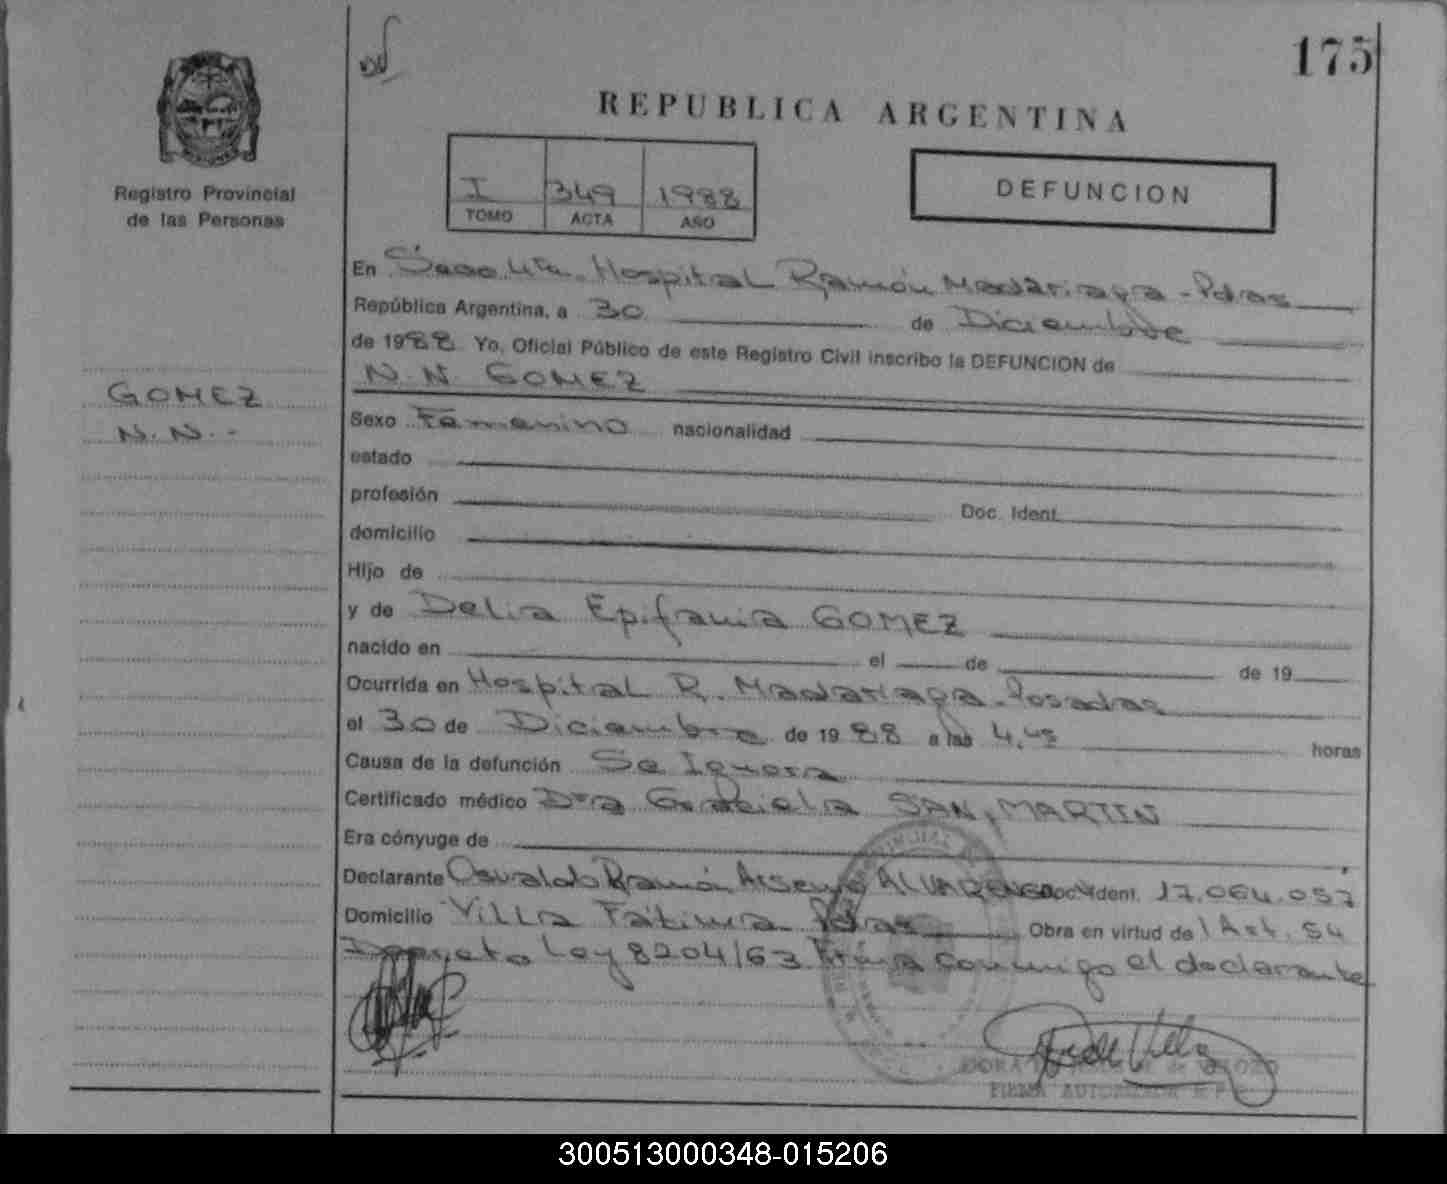 175
REPUBLICA ARGENTINA
Registro Provincial
de las Personas
I 349 1988
TOMO ACTA AÑO
DEFUNCION
GOMEZ
N.N.-
En Secc. 4ta. Hospital Ramón Madariaga - Pdas
República Argentina, a 30 de Diciembre
de 1988 Yo, Oficial Público de este Registro Civil inscribo la DEFUNCION de
N. N. GOMEZ
Sexo Femenino nacionalidad
estado
profesión Doc. Ident.
domicilio
Hijo de
y de Delia Epifania GOMEZ
nacido en el de de 19
Ocurrida en Hospital R. Madariaga - Posadas
el 30 de Diciembre de 1988 a las 4,45 horas
Causa de la defunción Se Ignora
Certificado médico Dra Graciela SAN MARTIN
Era cónyuge de
Declarante Osvaldo Ramón Arsenio ALVARENGA Doc. Ident. 17.064.057
Domicilio Villa Fátima Pdas Obra en virtud de l Art. 54
Decreto Ley 8204/63 Firma conmigo el declarante
FIRMA AUTORIZADA
300513000348-015206